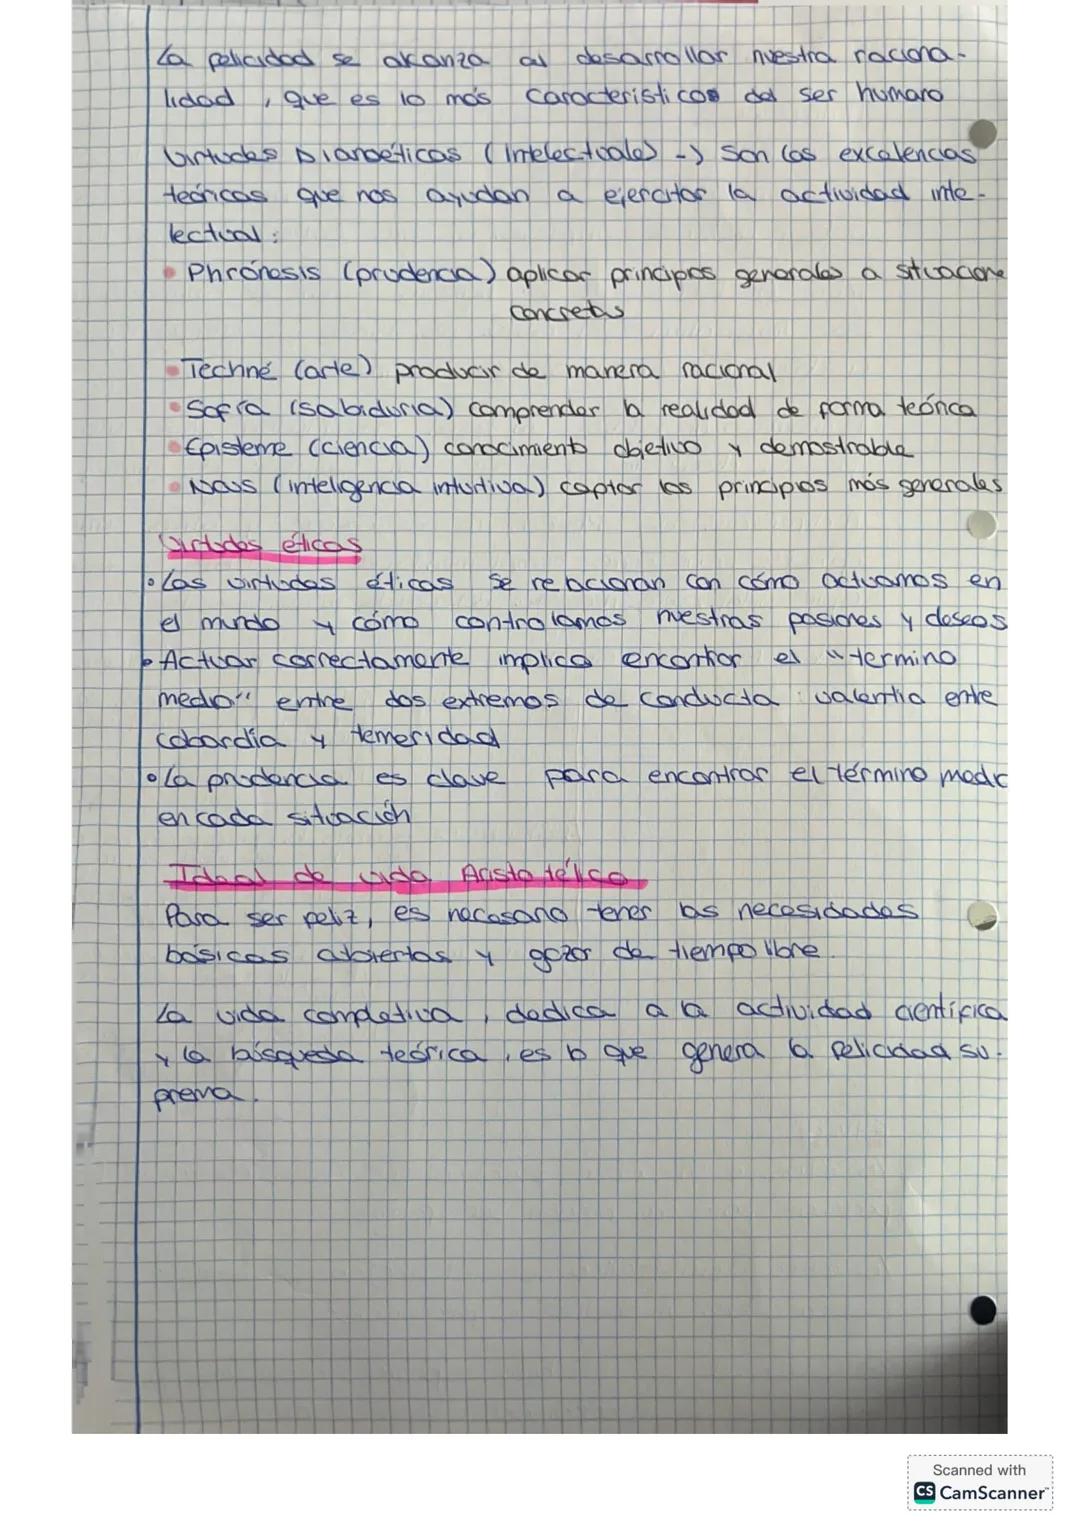 La felicidad se alcanza al desarrollar nuestra raciona-
lidad, que es lo más característicos del ser humano
Virtudes Dianoéticas (Intelectuales) -) Son las excelencias
teóricas que nos ayudan a ejercitar la actividad inte-
lectual:
• Phrónesis (prudencia) aplicar principios generales a situacione
concretas
• Techné (arte) producir de manera racional
• Sofía (sabiduría) comprender la realidad de forma teórica
• Episteme (ciencia) conocimiento objetivo y demostrable
• Naus (inteligencia intuitiva) captar los principios más generales
Virtudes éticas
• Las virtudes éticas se relacionan con cómo actuamos en
el mundo y cómo controlamos nuestras pasiones y deseos
• Actuar correctamente implica encontrar el "termino
medio" entre dos extremos de conducta: valentia entre
cobardía y temeridad
• La prudencia es clave para encontrar el término medio
en cada situación
Ideal de vida Aristotélico
Para ser feliz, es necesario tener las necesidades
básicas abiertas y gozar de tiempo libre.
La vida completiva, dedica a la actividad científica
y la búsqueda teórica, es lo que genera la felicidad su-
prema.
Scanned with
CS CamScanner